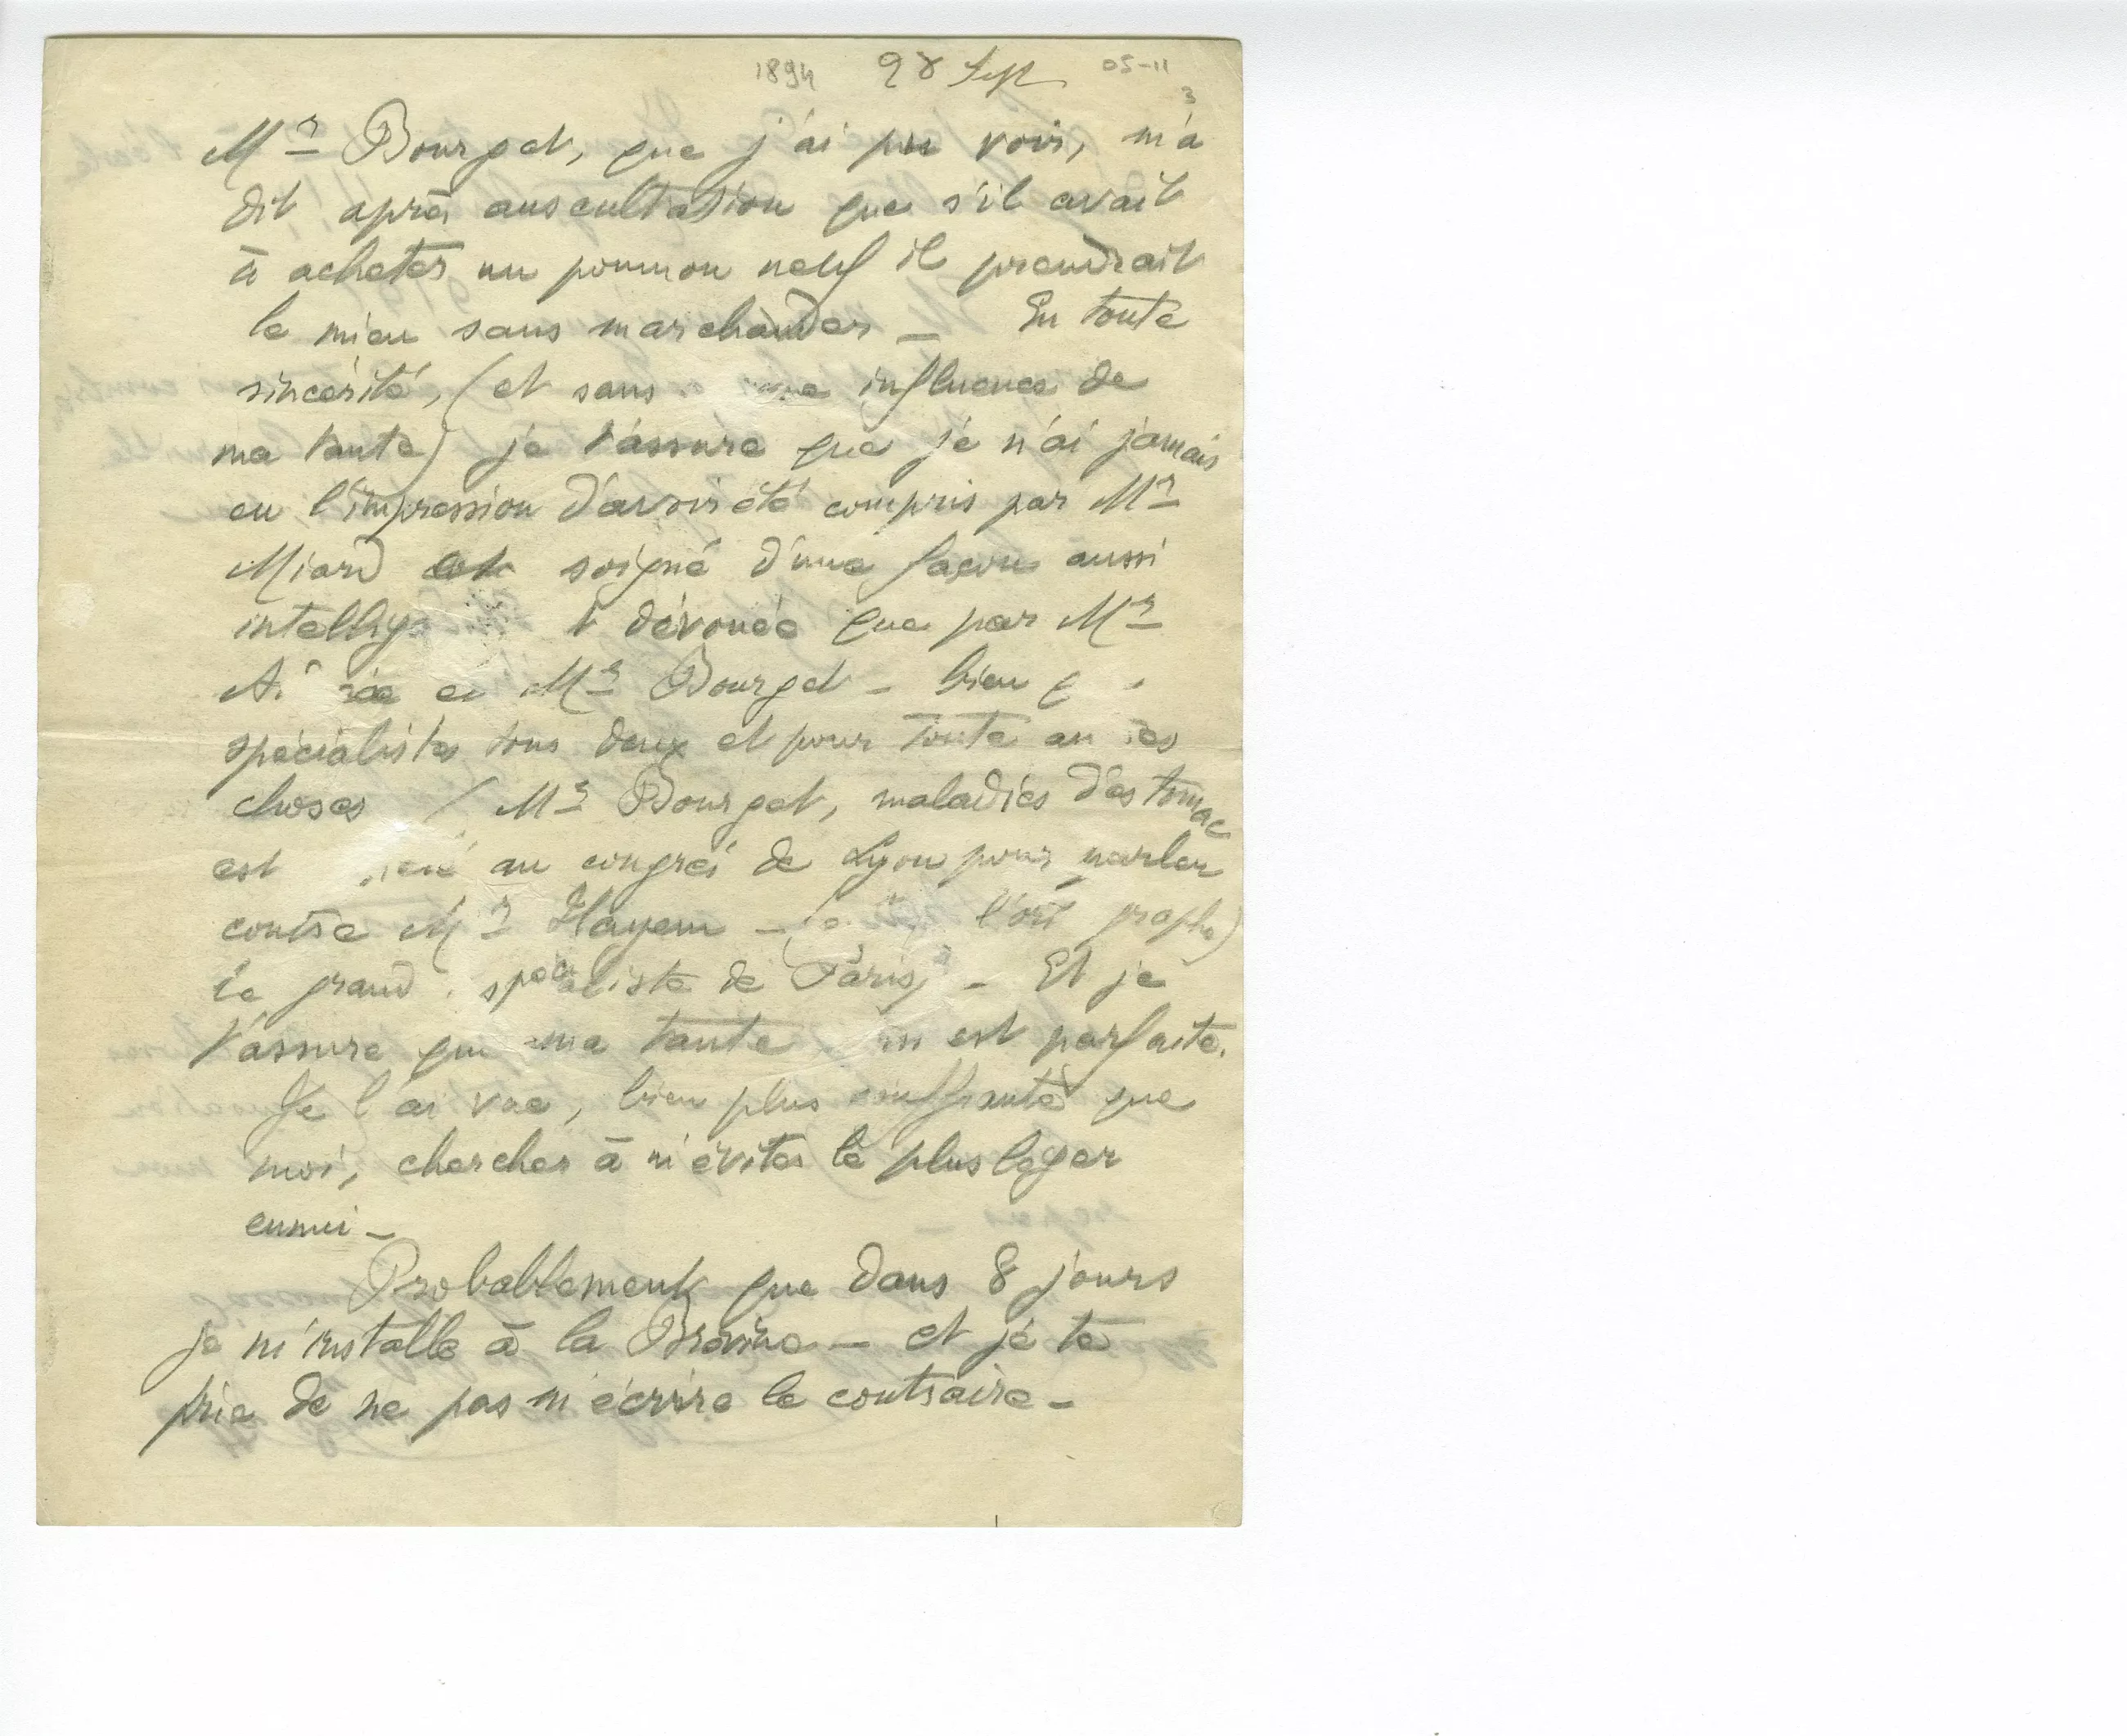 1894 28 Sept 05-11
3
Mr Bourget, que j'ai pu voir, m'a
dit après auscultation que s'il avait
à acheter un poumon neuf il prendrait
le mien sans marchander _ En toute
sincérité, (et sans influence de
ma tante) je t'assure que je n'ai jamais
eu l'impression d'avoir été compris par Mr
Miard et soigné d'une façon aussi
dévouée que par Mr
Mr Bourget - bien
spécialistes tous deux et pour toute
choses (Mr Bourget, maladies d'estomac
est au congrès de Lyon pour parler
contre Mr Hayem - ( l'ort graphe)
Le grand spécialiste de Paris) - Et je
t'assure que ma tante m est parfaite.
Je l'ai vue, bien plus souffrante que
moi, chercher à m'éviter le plus léger
ennui -
Probablement que dans 8 jours
je m'installe à la Brévine - et je te
prie de ne pas m'écrire le contraire -